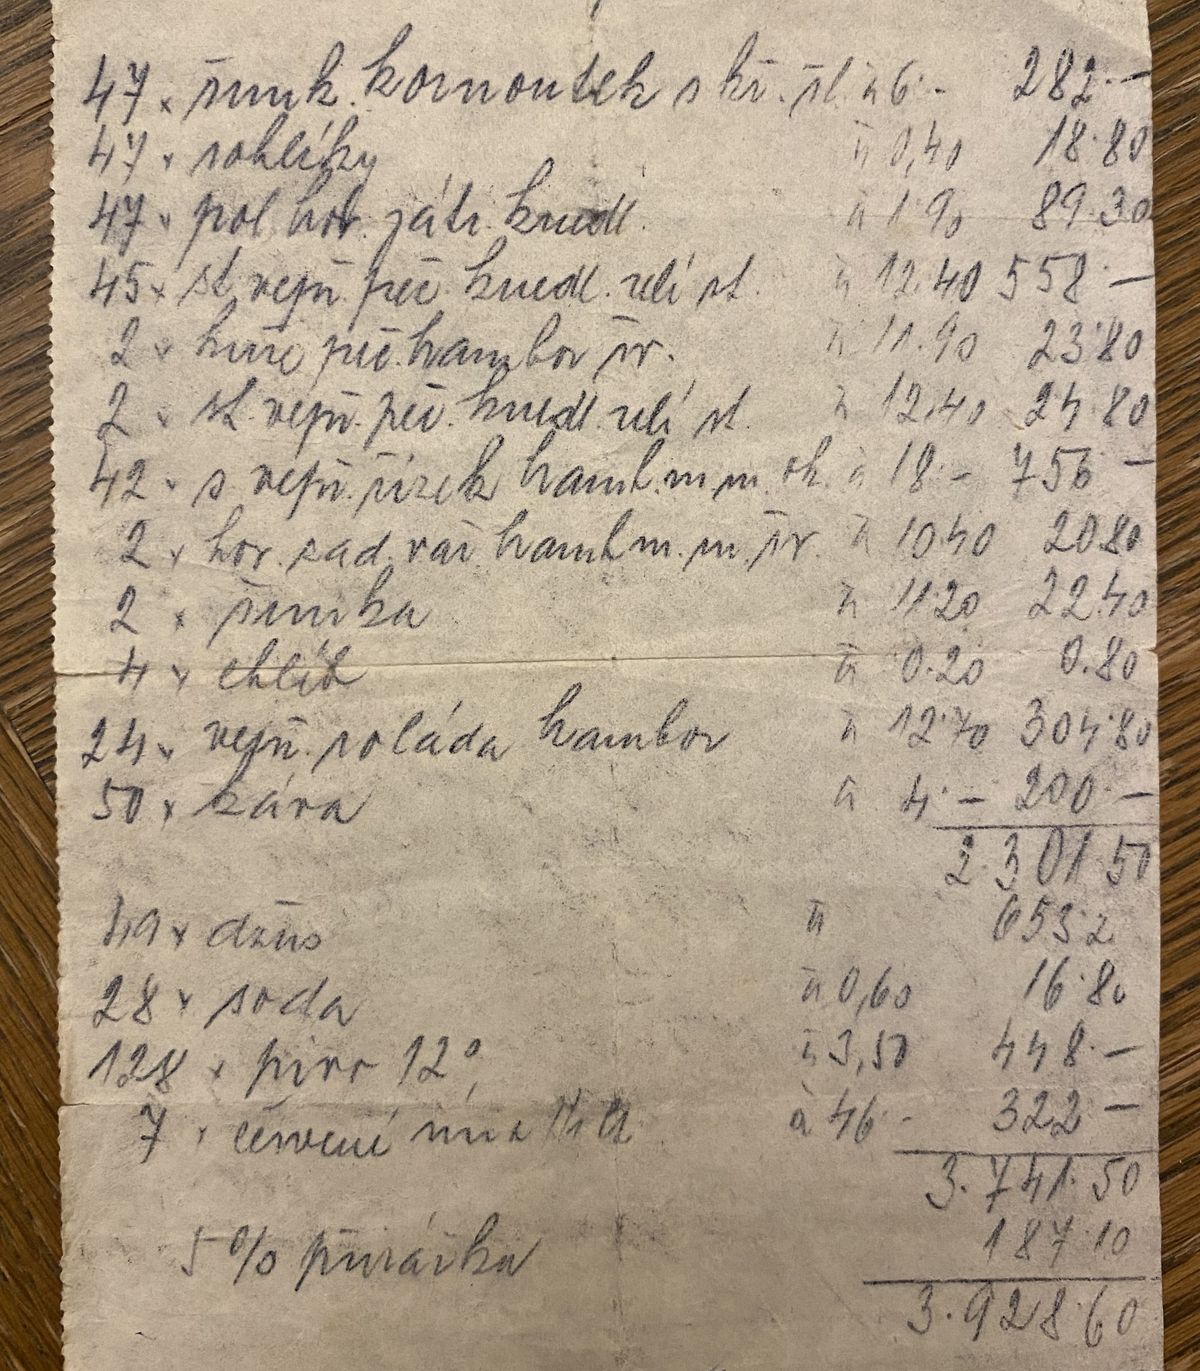 47 x šunk. kornoutek s kř. šl. à 6.- 282.-
47 x rohlíky à 0,40 18.80
47 x pol hov. játr. knedl. à 1.90 89.30
45 x st. vepř. peč. knedl. zelí st. à 12.40 558.-
2 x kuře peč. brambor šr. à 11.90 23.80
2 x st. vepř. peč. knedl. zelí st. à 12.40 24.80
42 x s. vepř. řízek bramb. m. m. ok. à 18.- 756.-
2 x hov. zad. vař. bramb. m. m. šr. à 10.40 20.80
2 x šunka à 11.20 22.40
4 x chléb à 0.20 0.80
24 x vepř. roláda brambor à 12.70 304.80
50 x káva à 4.- 200.-
2.301.50
49 x džus à 653.2
28 x soda à 0,60 16.80
128 x pivo 12° à 3,50 448.-
7 x červené à 46.- 322.-
3.741.50
5% přirážka 187.10
3.928.60